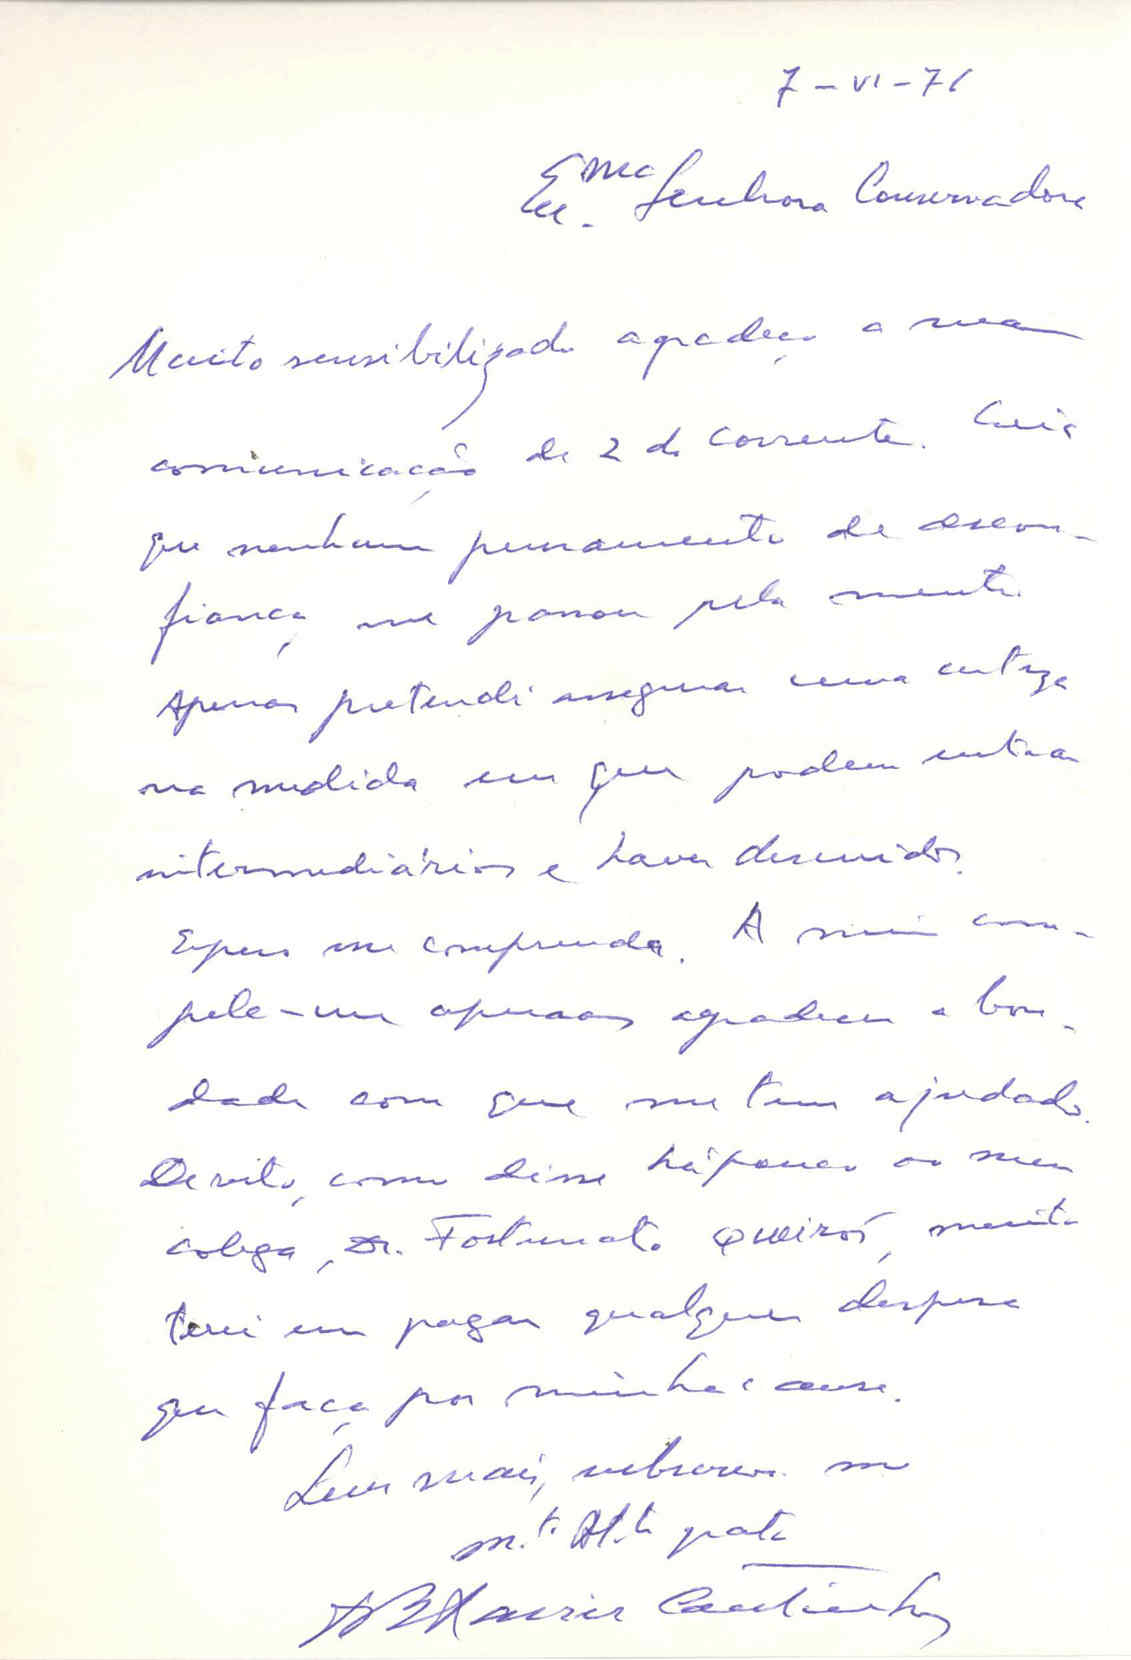 7-VI-76
Ex.ma Senhora Conservadora
Muito sensibilizado agradeço a sua
comunicação de 2 do corrente. Creia
que nenhum pensamento de descon-
fiança me passou pela mente.
Apenas pretendi assegurar uma certeza
na medida em que podem entrar
intermediários e haver descuidos.
Espero me compreenda. A mim com-
pete-me apenas agradecer a bon-
dade com que me tem ajudado.
De resto, como disse há pouco ao meu
colega, Dr. Fortunato Queirós, muito
terei em pagar qualquer despesa
que faça por minha causa.
Sem mais, subscrevo-me
m.to At.te grato
AB Xavier Coutinho